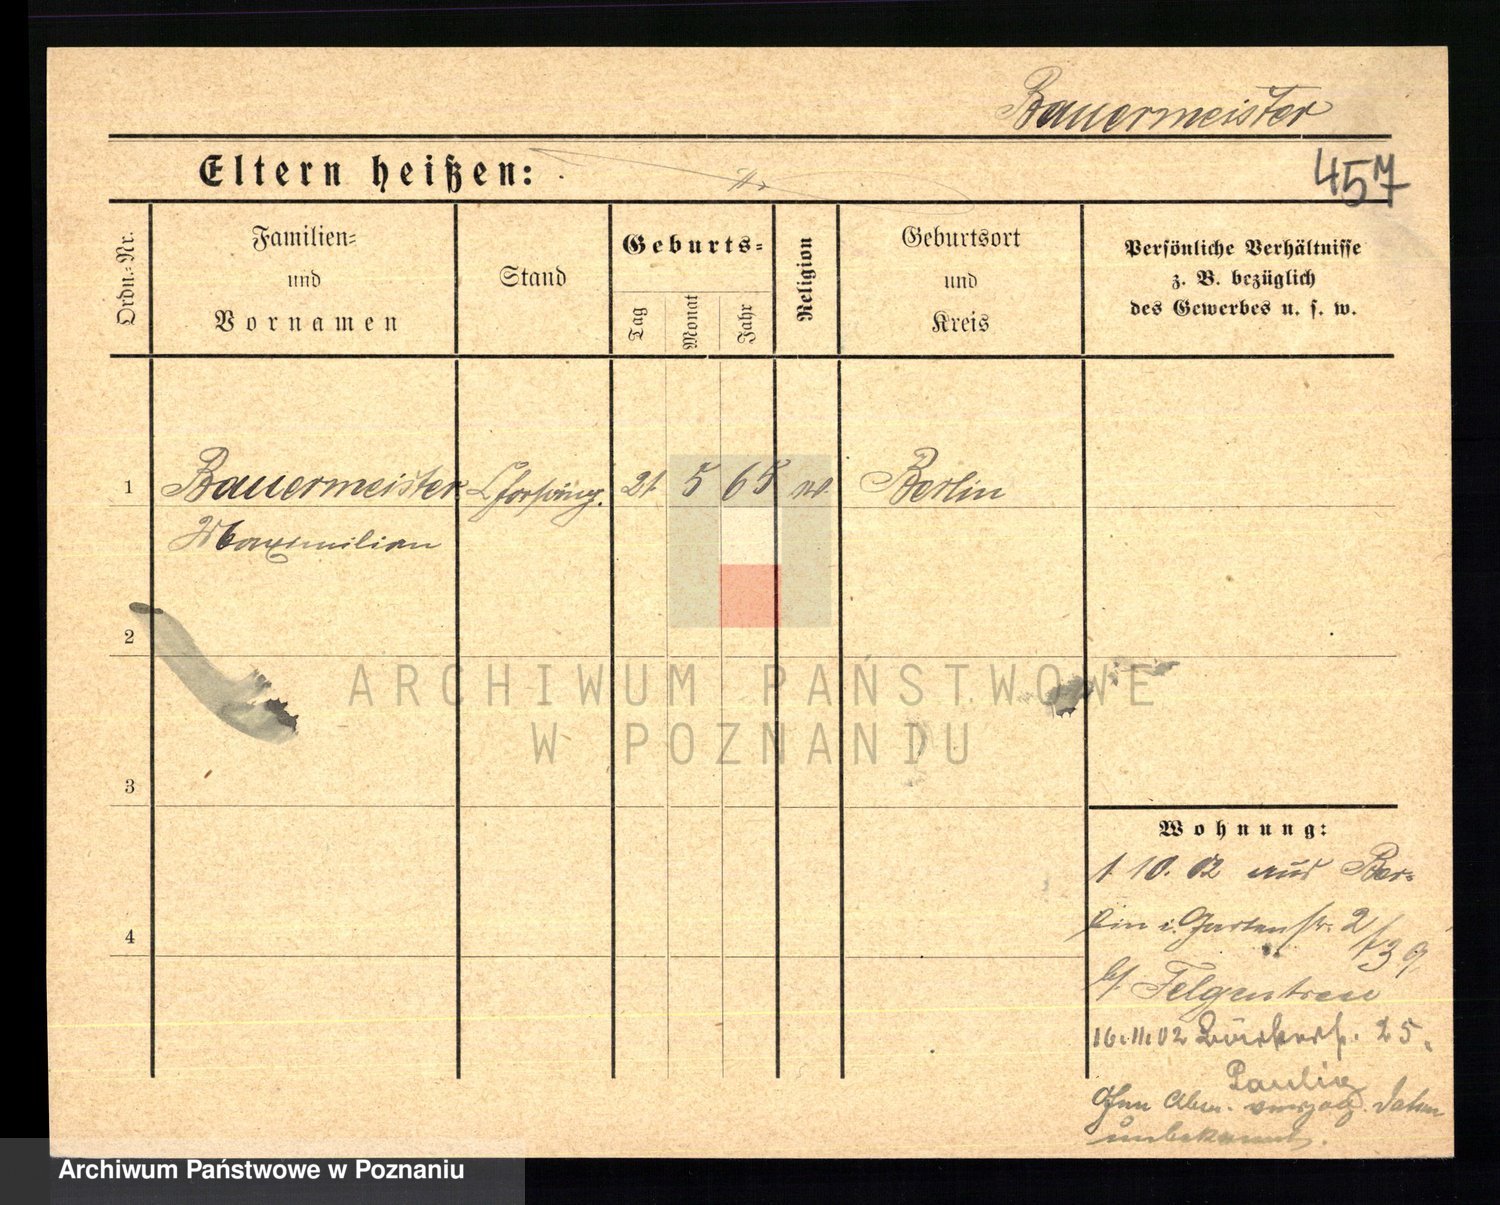 Bauermeister
Eltern heißen:
457
Ordn.-Nr.
Familien-
und
Vornamen
Stand
Geburts-
Tag
Monat
Jahr
Religion
Geburtsort
und
Kreis
Persönliche Verhältnisse
z. B. bezüglich
des Gewerbes u. s. w.
1 Bauermeister 21 5 65 Berlin
Maximilian
2
ARCHIWUM PAŃSTWOWE
W POZNANIU
3
Wohnung:
1. 10. 02 aus Ber-
lin i. Gartenstr. 2/
4
b/ Felgentreu
16.11.02 25.
Paulig
Ohne Abm. verzog. Datum
unbekannt.
Archiwum Państwowe w Poznaniu